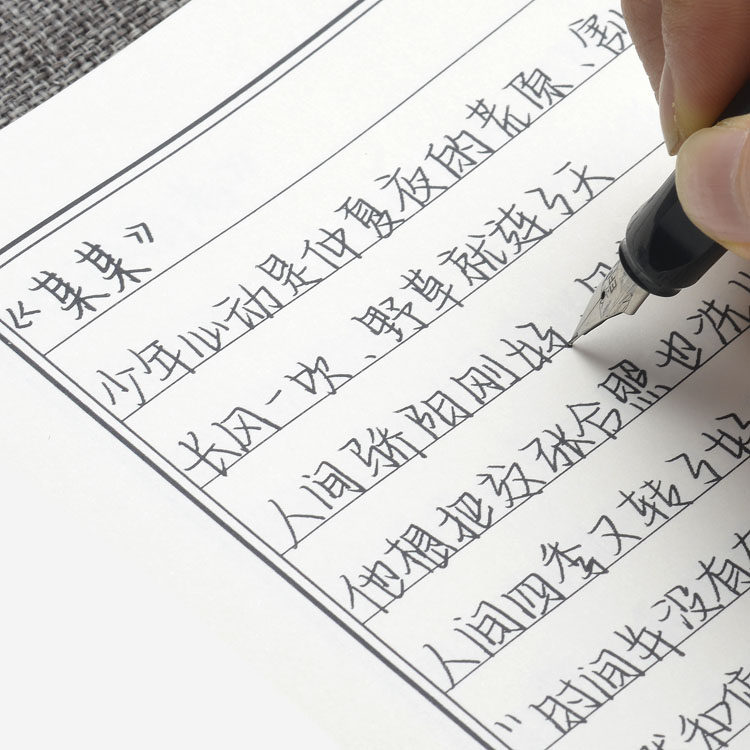 《某某》
少年心动是仲夏夜的荒原、割
长风一吹、野草就连了天
人间骄阳刚好
他想把这张合照也洗
人间四季又转了
"时间并没有
和